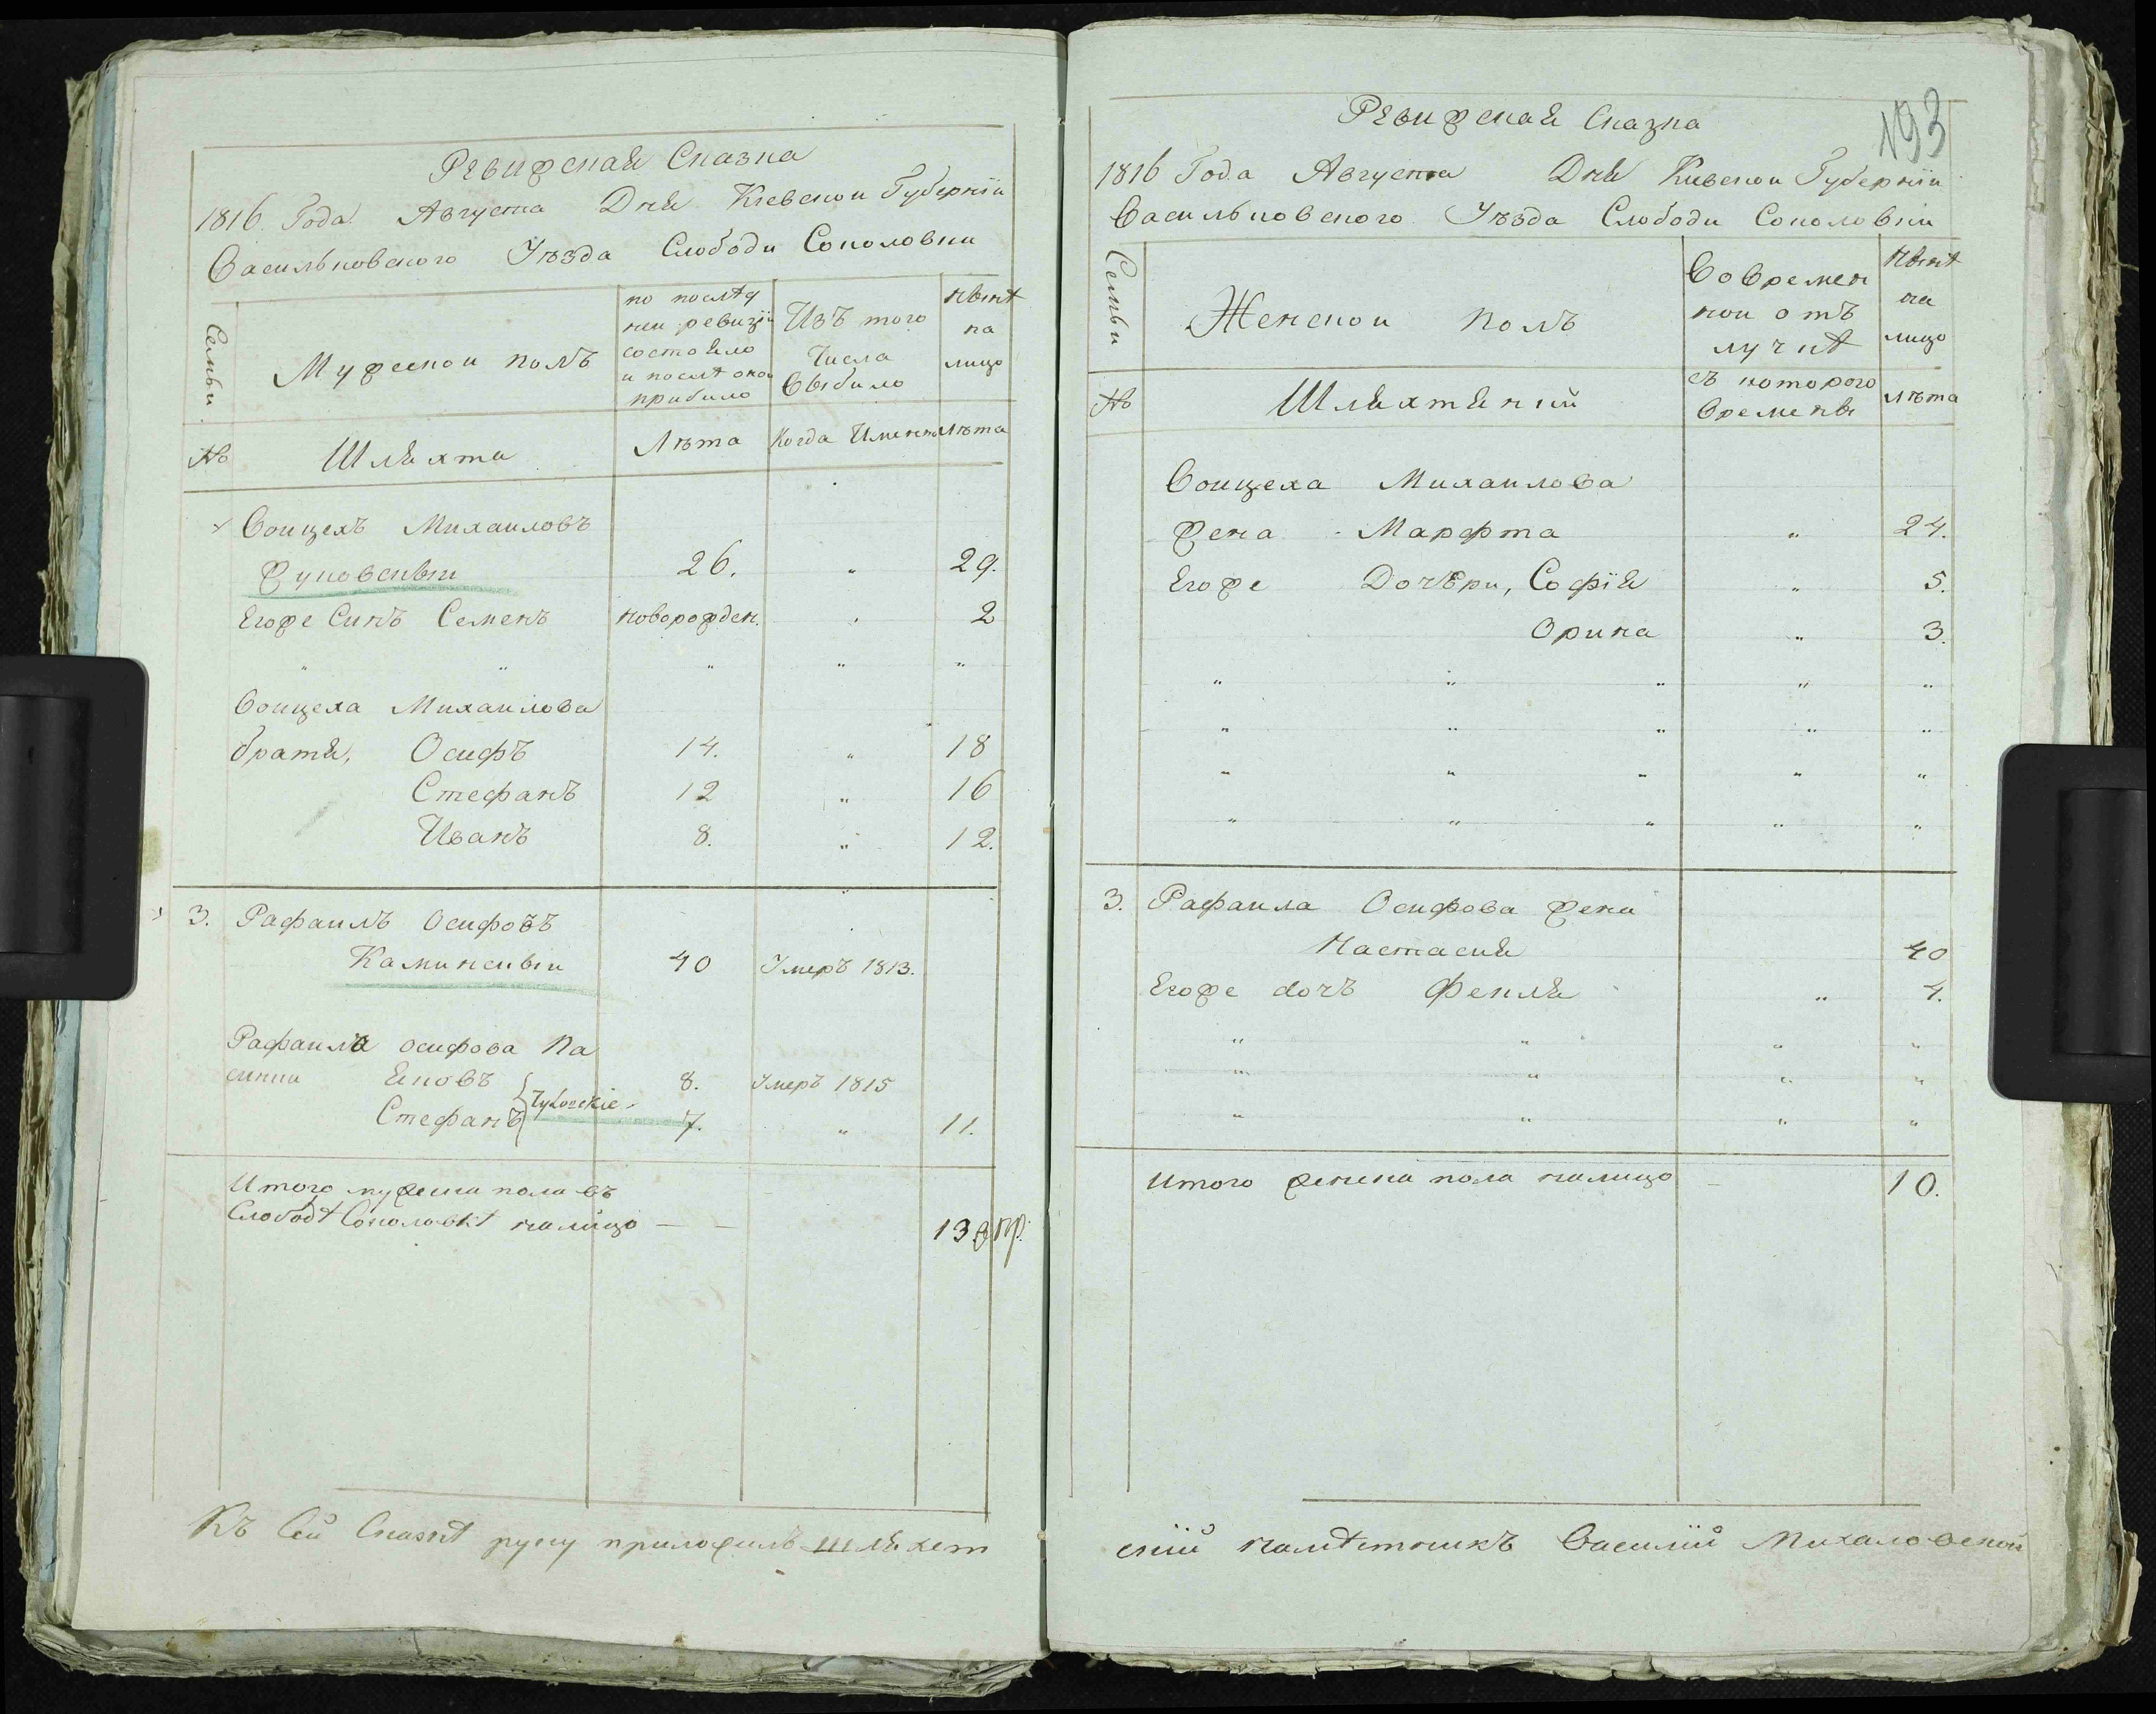 Ревижская Сказка
1816 Года Августа Дня Кіевскои Губерніи
Васильковского Уѣзда Слободи Соколовки
Семьи
Мужескои полъ
по послѣд
неи ревизіи
состояло
и послѣ оной
прибило
Изъ того
Числа
Выбыло
Нынѣ
на
лицо
№
Шляхта
Лѣта
Когда Именно
Лѣта
Воицехъ Михаиловъ
Жуковскыи 26. " 29.
Егоже Синъ Семенъ новорожден. " 2
" " " " "
Воицеха Михаилова
братя, Осифъ 14. " 18
Стефанъ 12 " 16
Иванъ 8. " 12.
3. Рафаилъ Осифовъ
Каминскыи 40 Умеръ 1813.
Рафаила осифова Па
синки Яковъ 8. Умеръ 1815
Стефанъ 7. " 11.
Итого мужеска пола въ
Слободѣ Соколовкѣ налицо — — 13
Къ Сей Сказкѣ руку приложилъ шляхет
193
Ревижская Сказка
1816 Года Августа Дня Киевскои Губерніи
Васильковского Уѣзда Слободи Соколовки
Семьи
Женскои полъ
Во времен
нои отъ
лучкѣ
Нынѣ
на
лицо
№
Шляхтяній
съ которого
времены
лѣта
Воицеха Михаилова
жена Марфта " 24.
Егоже Дочѣри, Софія " 5.
Орина " 3.
" " " " "
" " " " "
" " " " "
" " " " "
3. Рафаила Осифова жена
Настасия 40
Егоже дочъ Фекля " 4.
" " " "
" " " "
" " " "
Итого женска пола налицо — 10.
скій намѣстникъ Василій Михаловской